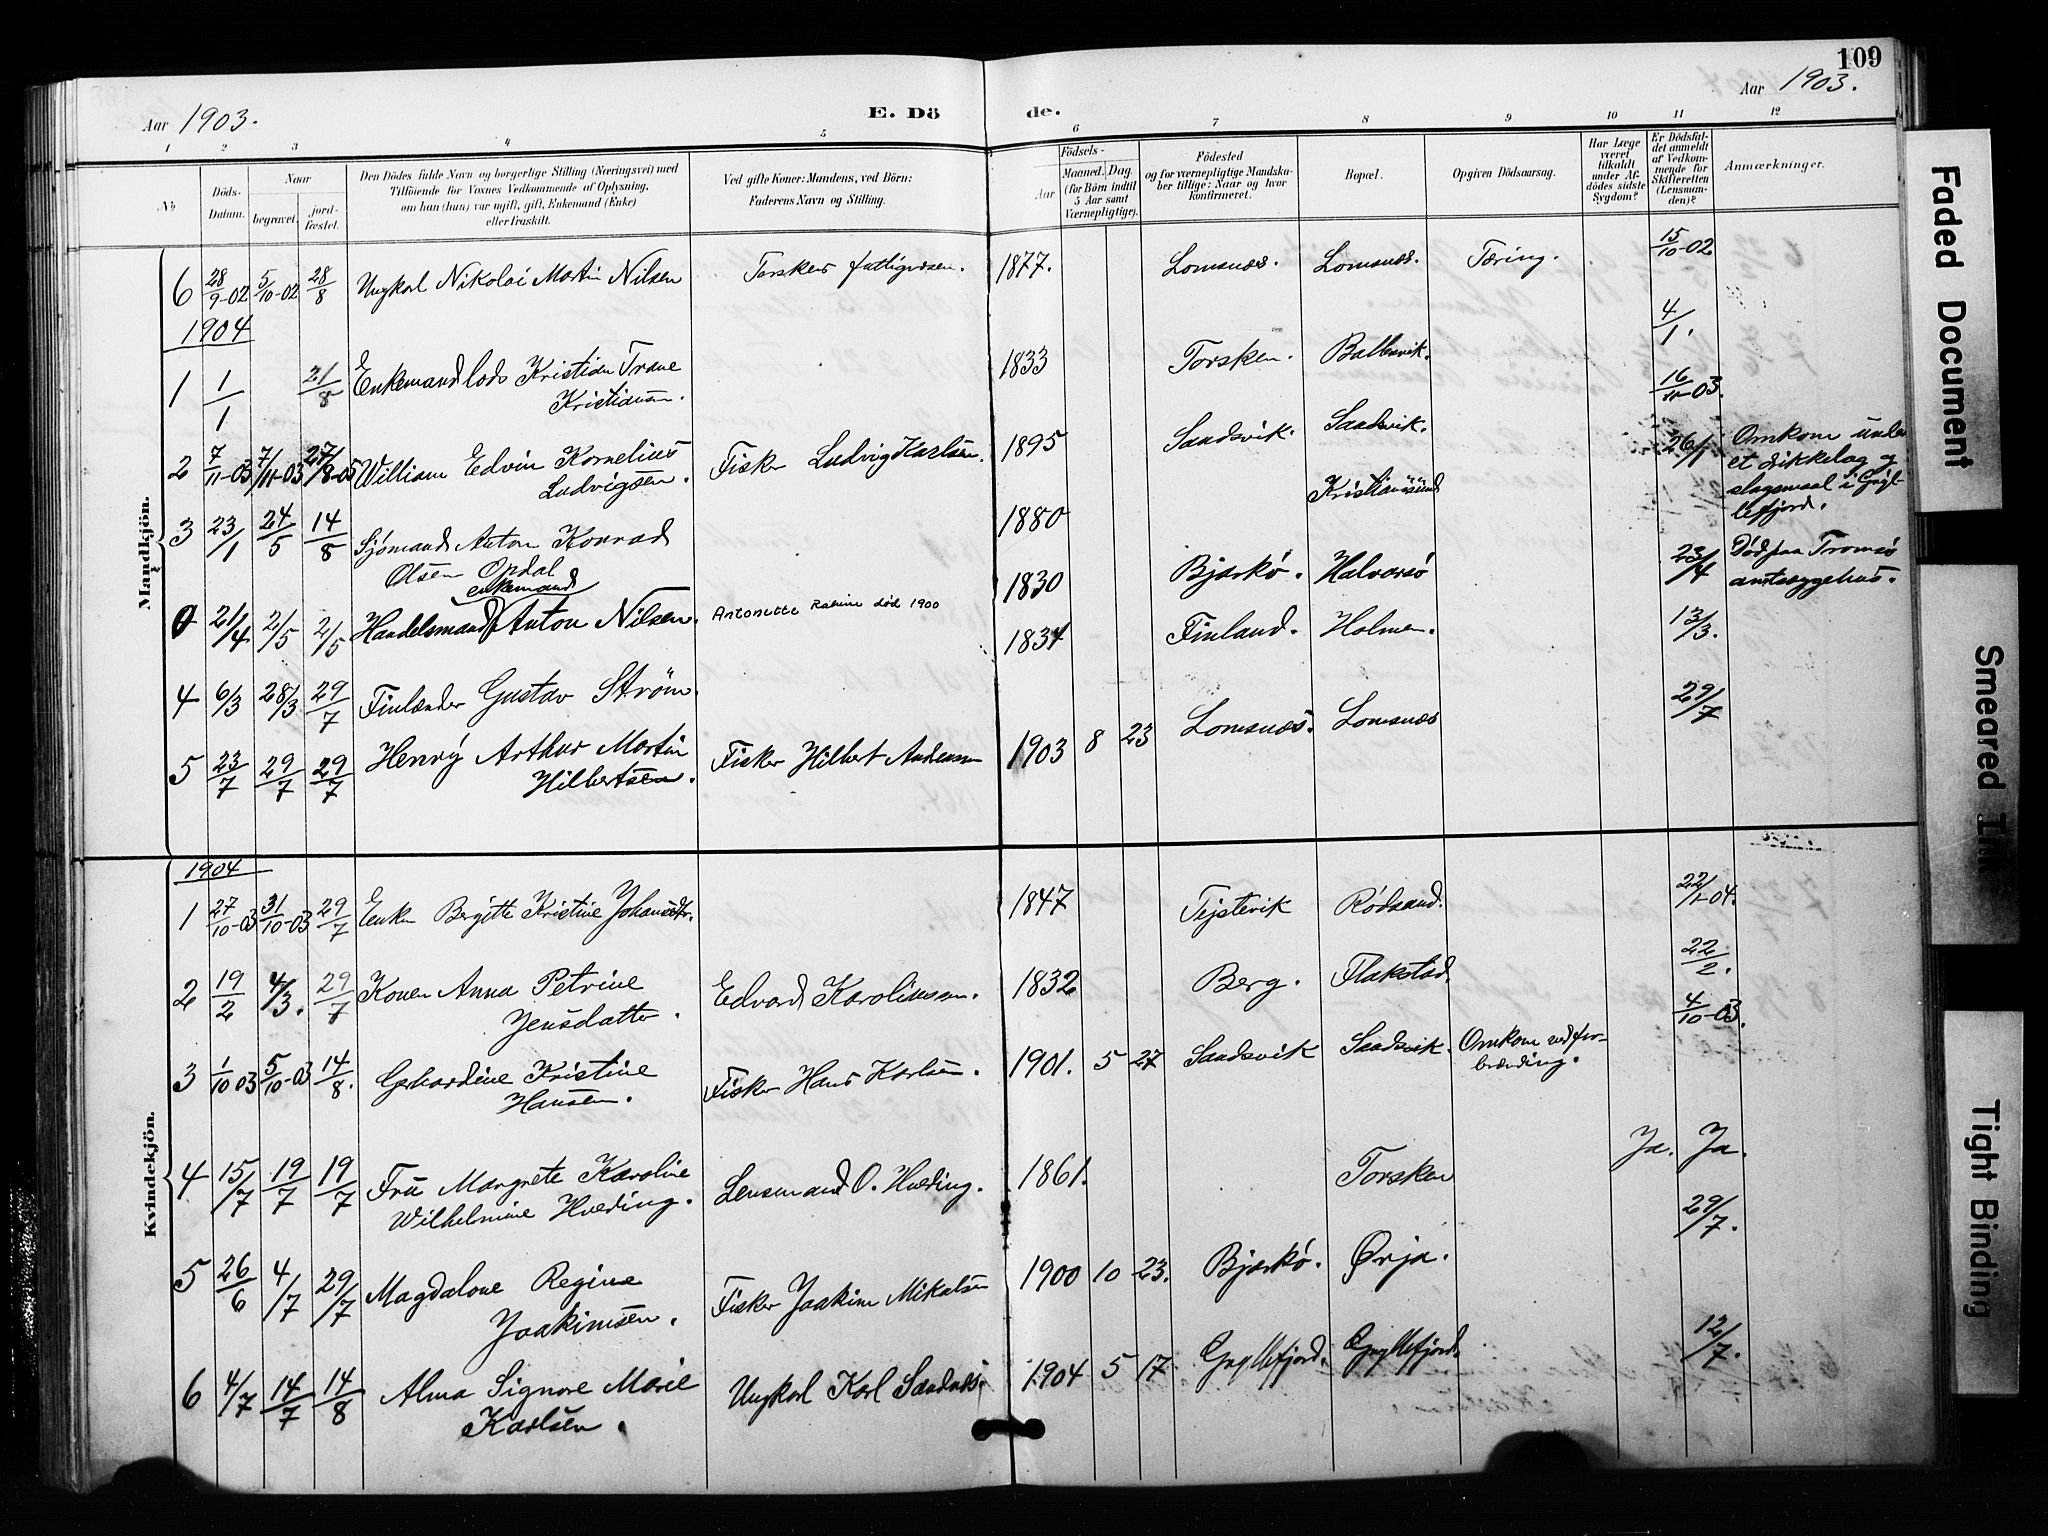 109
Aar 1903.
E. Dö
de.
Aar 1903.
1 2 3 4 5 6 7 8 9 10 11 12
No
Döds-
Datum.
Naar
begravet.
jord-
fæstet.
Den Dödes fulde Navn og borgerlige Stilling (Næringsvei) med
Tilföiende for Voxnes Vedkommende af Oplysning,
om han (hun) var ugift, gift, Enkemand (Enke)
eller fraskilt.
Ved gifte Koner: Mandens, ved Börn:
Faderens Navn og Stilling.
Födsels-
Aar
Maaned.
Dag.
(for Börn indtil
5 Aar samt
Værnepligtige).
Födested
og for værnepligtige Mandska-
ber tillige: Naar og hvor
konfirmeret.
Bopæl.
Opgiven Dödsaarsag.
Har Læge
været
tilkaldt
under Af-
dödes sidste
Sygdom?
Er Dödsfal-
det anmeldt
af Vedkom-
mende for
Skifteretten
(Lensman-
den)?
Anmærkninger.
Mandkjön.
6 28/9-02 5/10-02 28/8 Ungkarl Nikolai Martin Nilsen Torskens fattigvæsen. 1877. Lomsnæs. Lomsnæs. Tæring. 15/10-02
1904
1 1/1 21/8 Enkemand lods Kristian Trane 1833 Torsken. Ballesvik. 4/1.
Kristiansen.
2 7/11-03 7/11-03 27/8-05 William Edvin Kornelius Fisker Ludvig Karlsen. 1895 Sandsvik. Sandsvik. 16/11-03.
Ludvigsen.
3 23/1 24/5 14/8 Sjömand Anton Konrad 1880 Kristiansund 26/1 Omkom under
Olsen Opdal
et drikkelag og
slagsmaal i Gryl-
lefjord.
enkemand
0 21/4 2/5 2/5 Handelsmand Anton Nilsen. Antonette Rakine död 1900 1830 Bjarkö. Halvarsö 23/4 Död paa Tromsö
amtssygehus.
4 6/3 28/3 29/7 Finlænder Gustav Ström. 1834 Finland. Holmen. 13/3.
5 23/7 29/7 29/7 Henry Arthur Martin Fisker Hilbert Andersen 1903 8 23 Lomsnæs. Lomsnæs 29/7
Hilbertsen.
Kvindekjön.
1904
1 27/10-03 31/10-03 29/7 Enken Bergitte Kristine Johansdtr. 1847 Tejstevik Rödsand. 22/1-04.
2 19/2 4/3. 29/7 Konen Anna Petrine Edvard Karolinssen. 1832 Berg. Flakstad. 22/2.
Jensdatter.
3 1/10 03 5/10-03 14/8. Gerhardine Kristine Fisker Hans Karlsen. 1901. 5 27 Sandsvik Sandsvik. Omkom ved for- 4/10-03.
Hansen.
brænding.
4 15/7 19/7 19/7 Fru Margrete Karoline Lensmand O. Hveding. 1861. Torsken Ja. Ja.
Wilhelmine Hveding.
5 26/6 4/7 29/7 Magdalone Regine Fisker Joakim Mikalsen 1900 10 23. Bjarkö. Ørja. 29/7.
Joakimsen.
6 4/7 14/7 14/8 Alma Signore Marie Ungkarl Karl Sandnæs. 1904 5 17 Gryllefjord. Gryllefjord. 12/7.
Karlsen.
Faded Document
Smeared Ink
Tight Binding